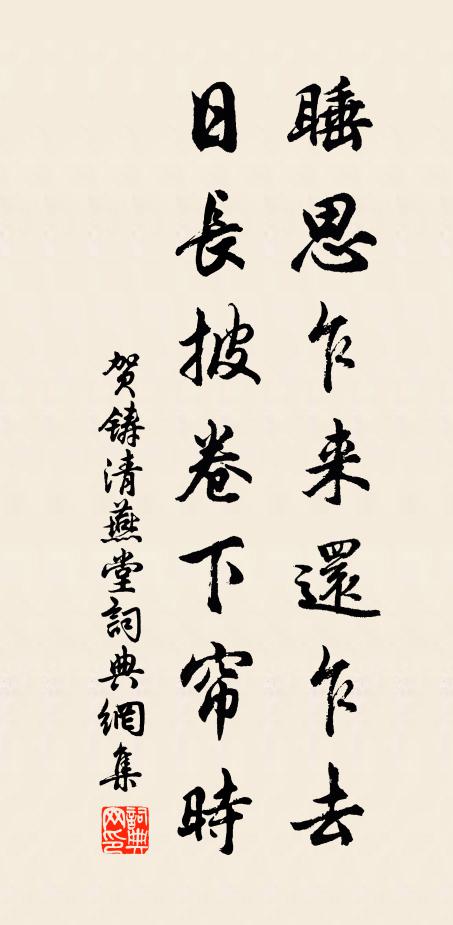 睡思乍来還乍去
日長披卷下帘時
贺鑄清燕堂詞典網集
詞典
网印